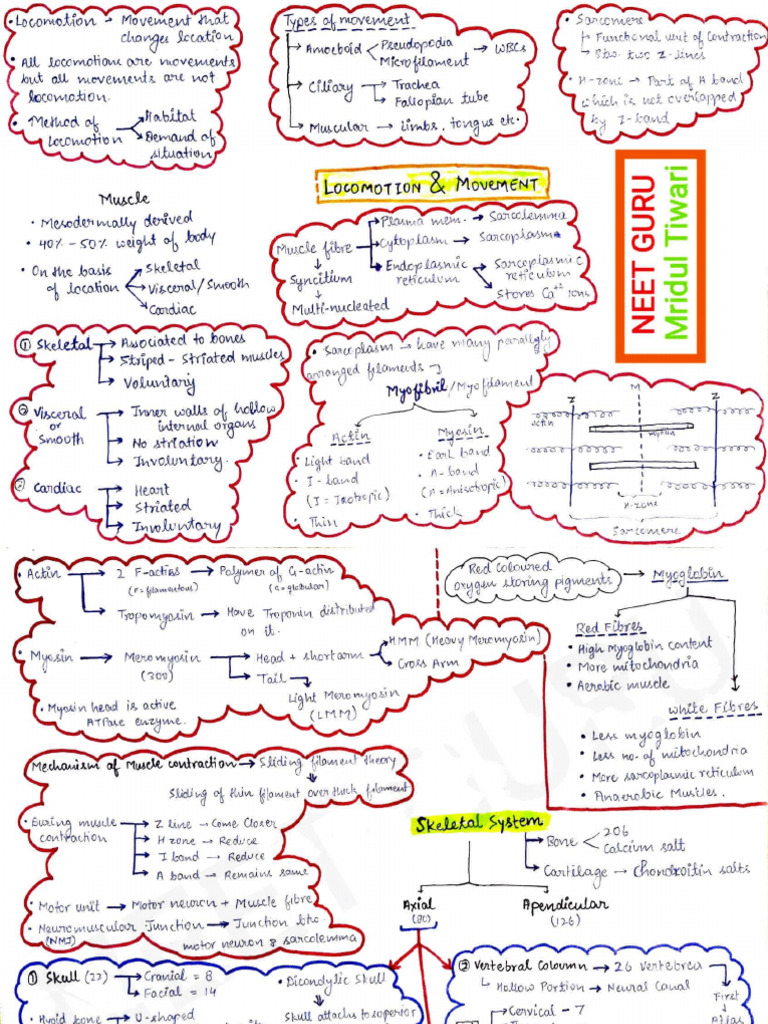 • Locomotion → Movement that
changes location
• All locomotion are movements
but all movements are not
locomotion.
• Method of
Locomotion
Habitat
Demand of
situation
Types of movement
Amoeboid
Pseudopodia
Microfilament
→ WBCs
Ciliary
Trachea
Fallopian tube
Muscular → Limbs, tongue etc.
• Sarcomere
Functional unit of Contraction
Btw. two Z-lines
• H-zone → Part of A band
which is not overlapped
by I-band
LOCOMOTION & MOVEMENT
NEET GURU
Mridul Tiwari
Muscle
• Mesodermally derived
• 40% - 50% weight of body
• On the basis
of location
Skeletal
Visceral/Smooth
Cardiac
Muscle fibre
Syncitium
Multi-nucleated
Plasma mem. → Sarcolemma
Cytoplasm → Sarcoplasm
Endoplasmic
reticulum
Sarcoplasmic
reticulum
Stores Ca++ ions
① Skeletal
Associated to bones
Striped - Striated muscles
Voluntary
② Visceral
or
Smooth
Inner walls of hollow
internal organs
No striation
Involuntary.
Cardiac
Heart
Striated
Involuntary
• Sarcoplasm → have many parallely
arranged filaments →
Myofibril/Myofilament
Actin
• Light band
• I - band
(I = Isotropic)
• Thin
Myosin
• Dark band
• A - band
(A = Anisotropic)
• Thick
Z
M
Z
actin
myosin
H-zone
Sarcomere
• Actin
2 F-actins → Polymer of G-actin
(F = filamentous)
(G = globular)
Tropomyosin → Have Troponin distributed
on it.
• Myosin → Meromyosin
(300)
Head + short arm
HMM (Heavy Meromyosin)
Cross Arm
Tail
Light Meromyosin
(LMM)
• Myosin head is active
ATPase enzyme.
Red Coloured
oxygen storing pigments
→ Myoglobin
Red Fibres
• High Myoglobin content
• More mitochondria
• Aerobic muscle
White Fibres
• Less myoglobin
• Less no. of mitochondria
• More sarcoplasmic reticulum
• Anaerobic Muscles.
Mechanism of Muscle contraction → Sliding filament theory
Sliding of thin filament over thick filament
• During muscle
contraction
Z line → Come Closer
H zone → Reduce
I band → Reduce
A band → Remains same
• Motor unit → Motor neuron + Muscle fibre
• Neuromuscular Junction → Junction btw.
(NMJ)
motor neuron & sarcolemma
Skeletal System
Bone
206
Calcium salt
Cartilage → Chondroitin salts
Axial
(80)
Apendicular
(126)
① Skull (22)
Cranial = 8
Facial = 14
• Dicondylic skull
Skull attachs to superior
• Hyoid bone → U-shaped
② Vertebral Coloumn → 26 Vertebrea
Hollow Portion → Neural Canal
First
Atlas
Cervical - 7